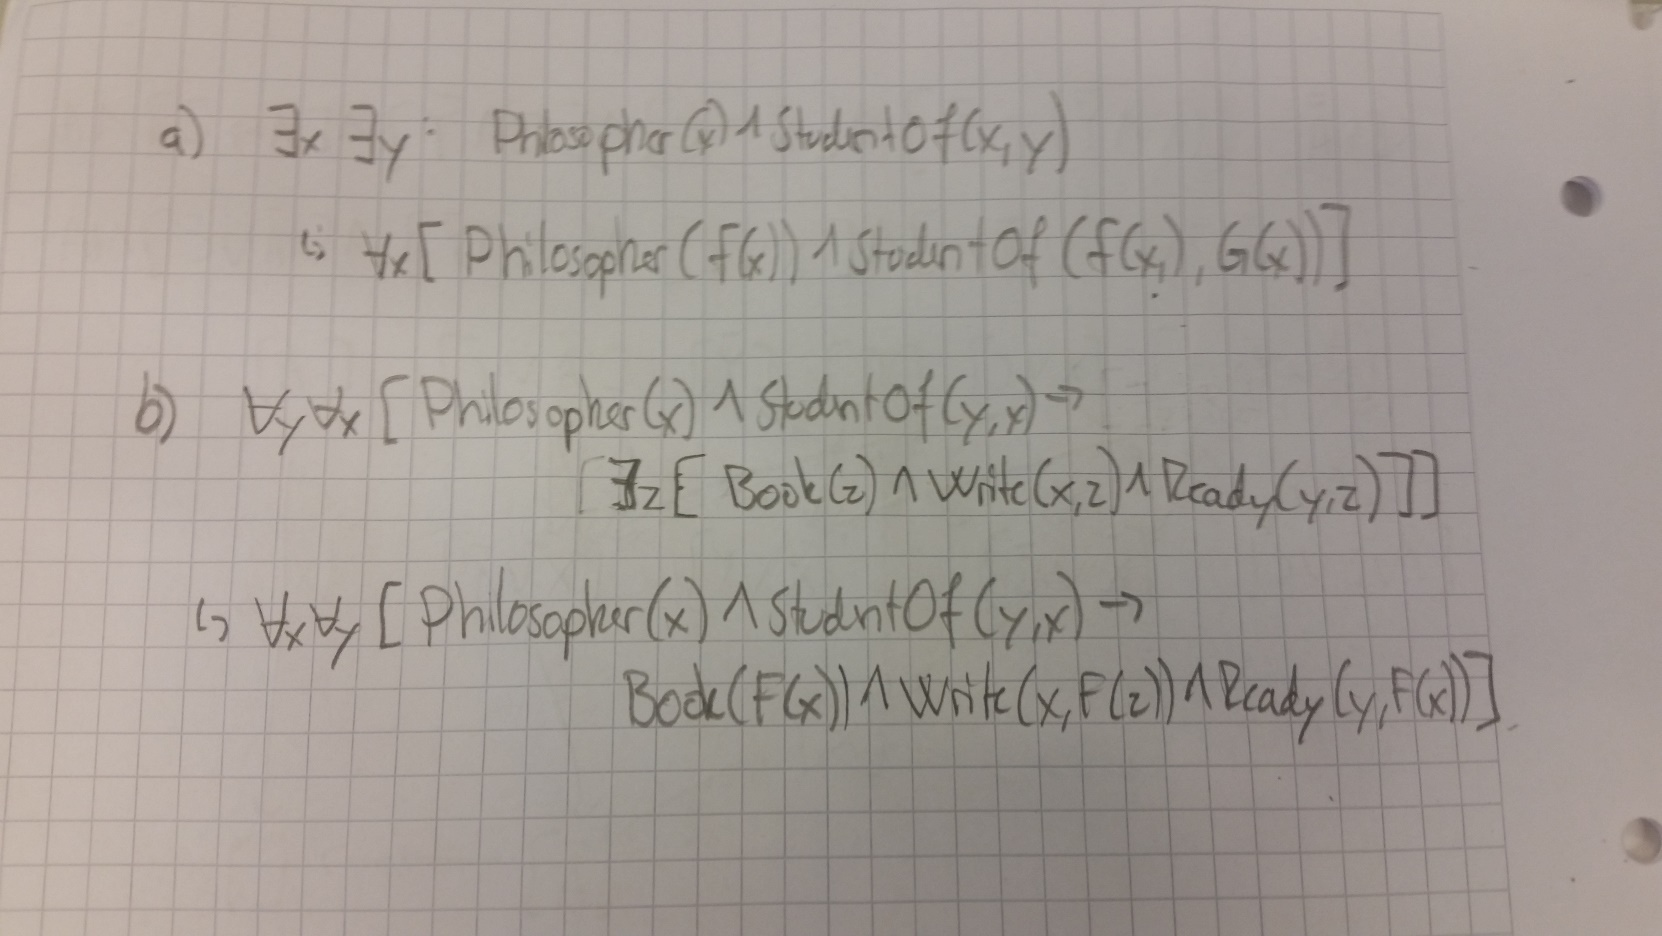 a) ∃x ∃y: Philosopher(x) ∧ StudentOf(x,y)
↳ ∀x[ Philosopher(f(x)) ∧ StudentOf (f(x), G(x))]
b) ∀y∀x [Philosopher(x) ∧ StudntOf(y,x) →
[∃z[ Book(z) ∧ Write(x,z) ∧ Ready(y,z)]]]
↳ ∀x∀y [Philosopher(x) ∧ StudntOf(y,x) →
Book(F(x)) ∧ Write(x,F(z)) ∧ Ready(y,F(x))]